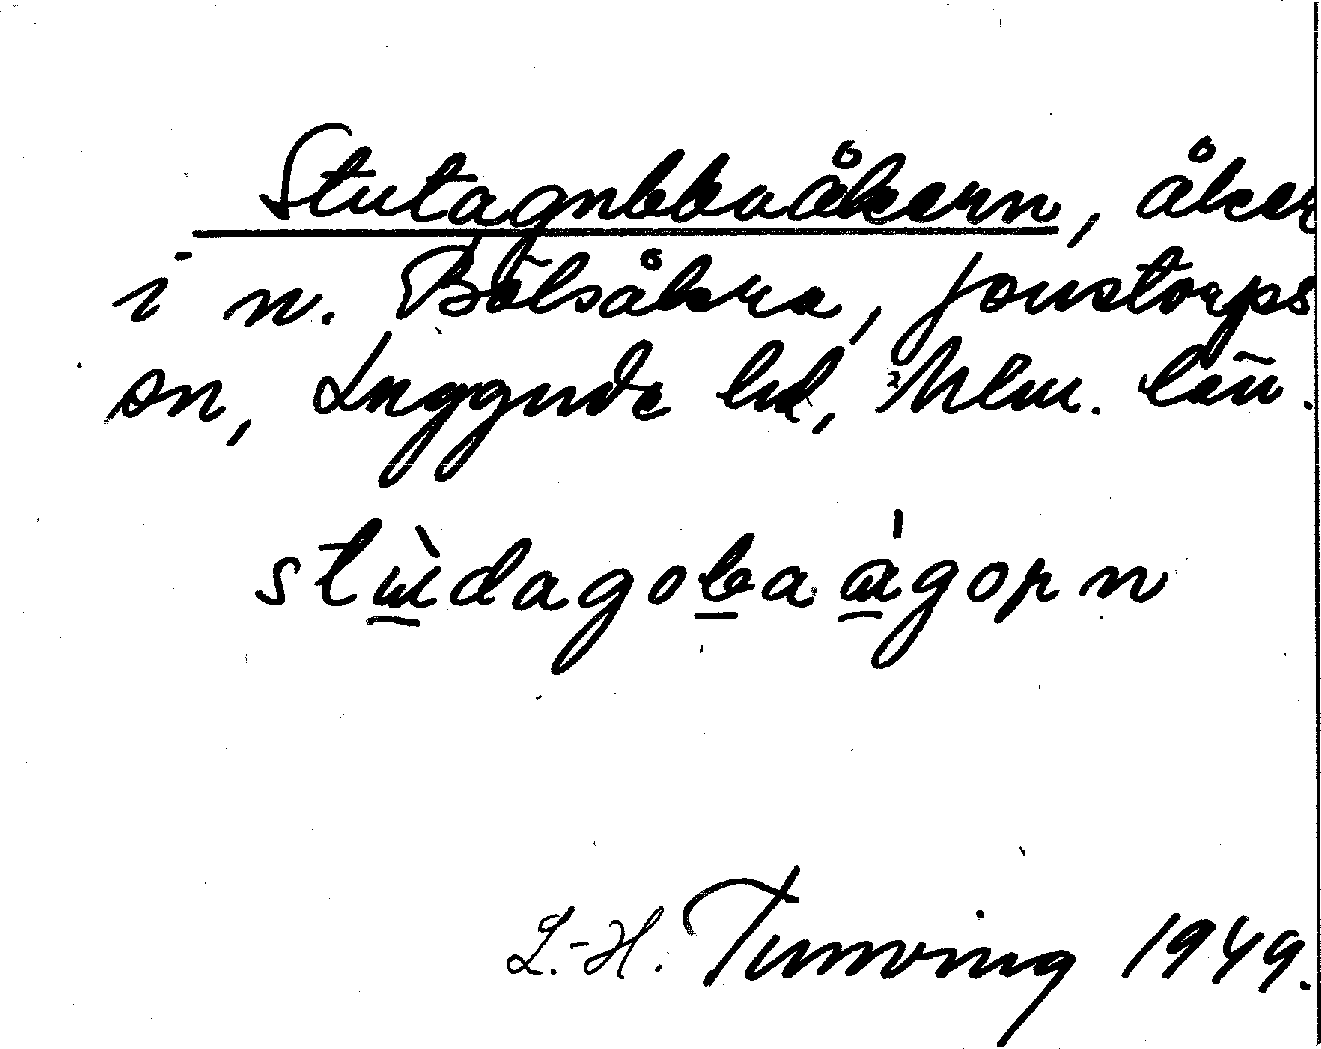 Stutagubbaåkern, åker
i n. Bölsåkra, Jonstorps
sn, Luggude hd, Mlm. län.
stù̱dagoba̱ågorn
L.-H. Tunving 1949.